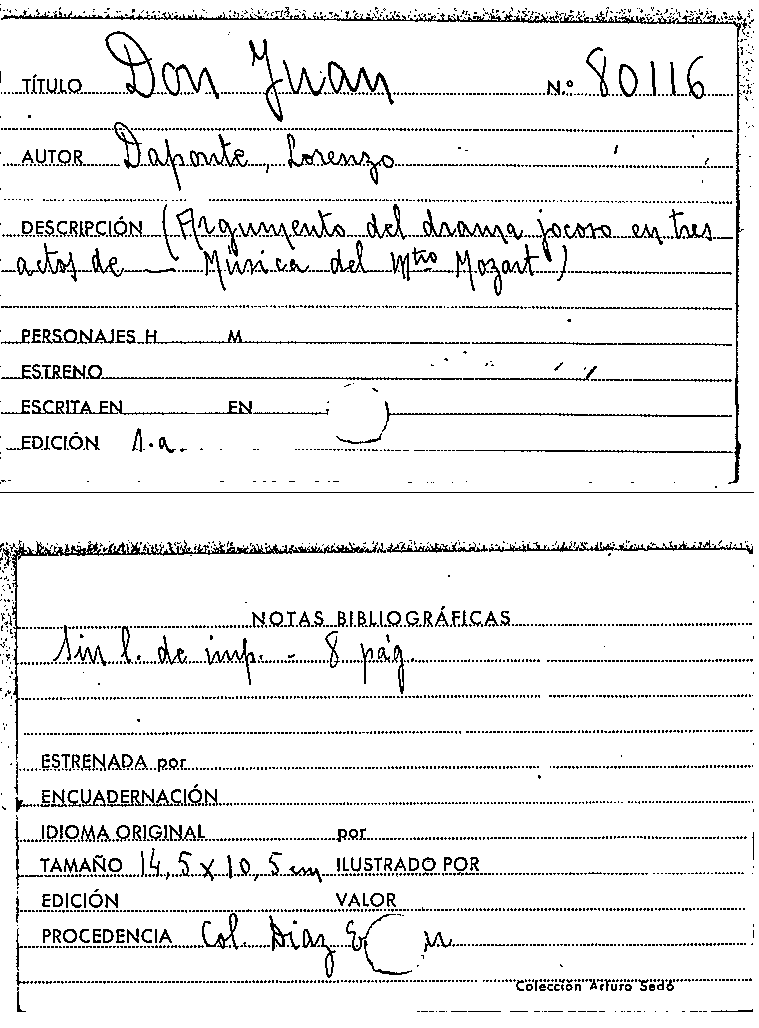 TÍTULO Don Juan N.º 80116
AUTOR Daponte, Lorenzo
DESCRIPCIÓN (Argumento del drama jocoso en tres
actos de — Música del Mtro Mozart)
PERSONAJES H M
ESTRENO
ESCRITA EN EN
EDICIÓN s.a.
NOTAS BIBLIOGRÁFICAS
Sin l. de imp. - 8 pág.
ESTRENADA por
ENCUADERNACIÓN
IDIOMA ORIGINAL por
TAMAÑO 14,5 x 10,5 cm ILUSTRADO POR
EDICIÓN VALOR
PROCEDENCIA Col. Díaz
Colección Arturo Sedó